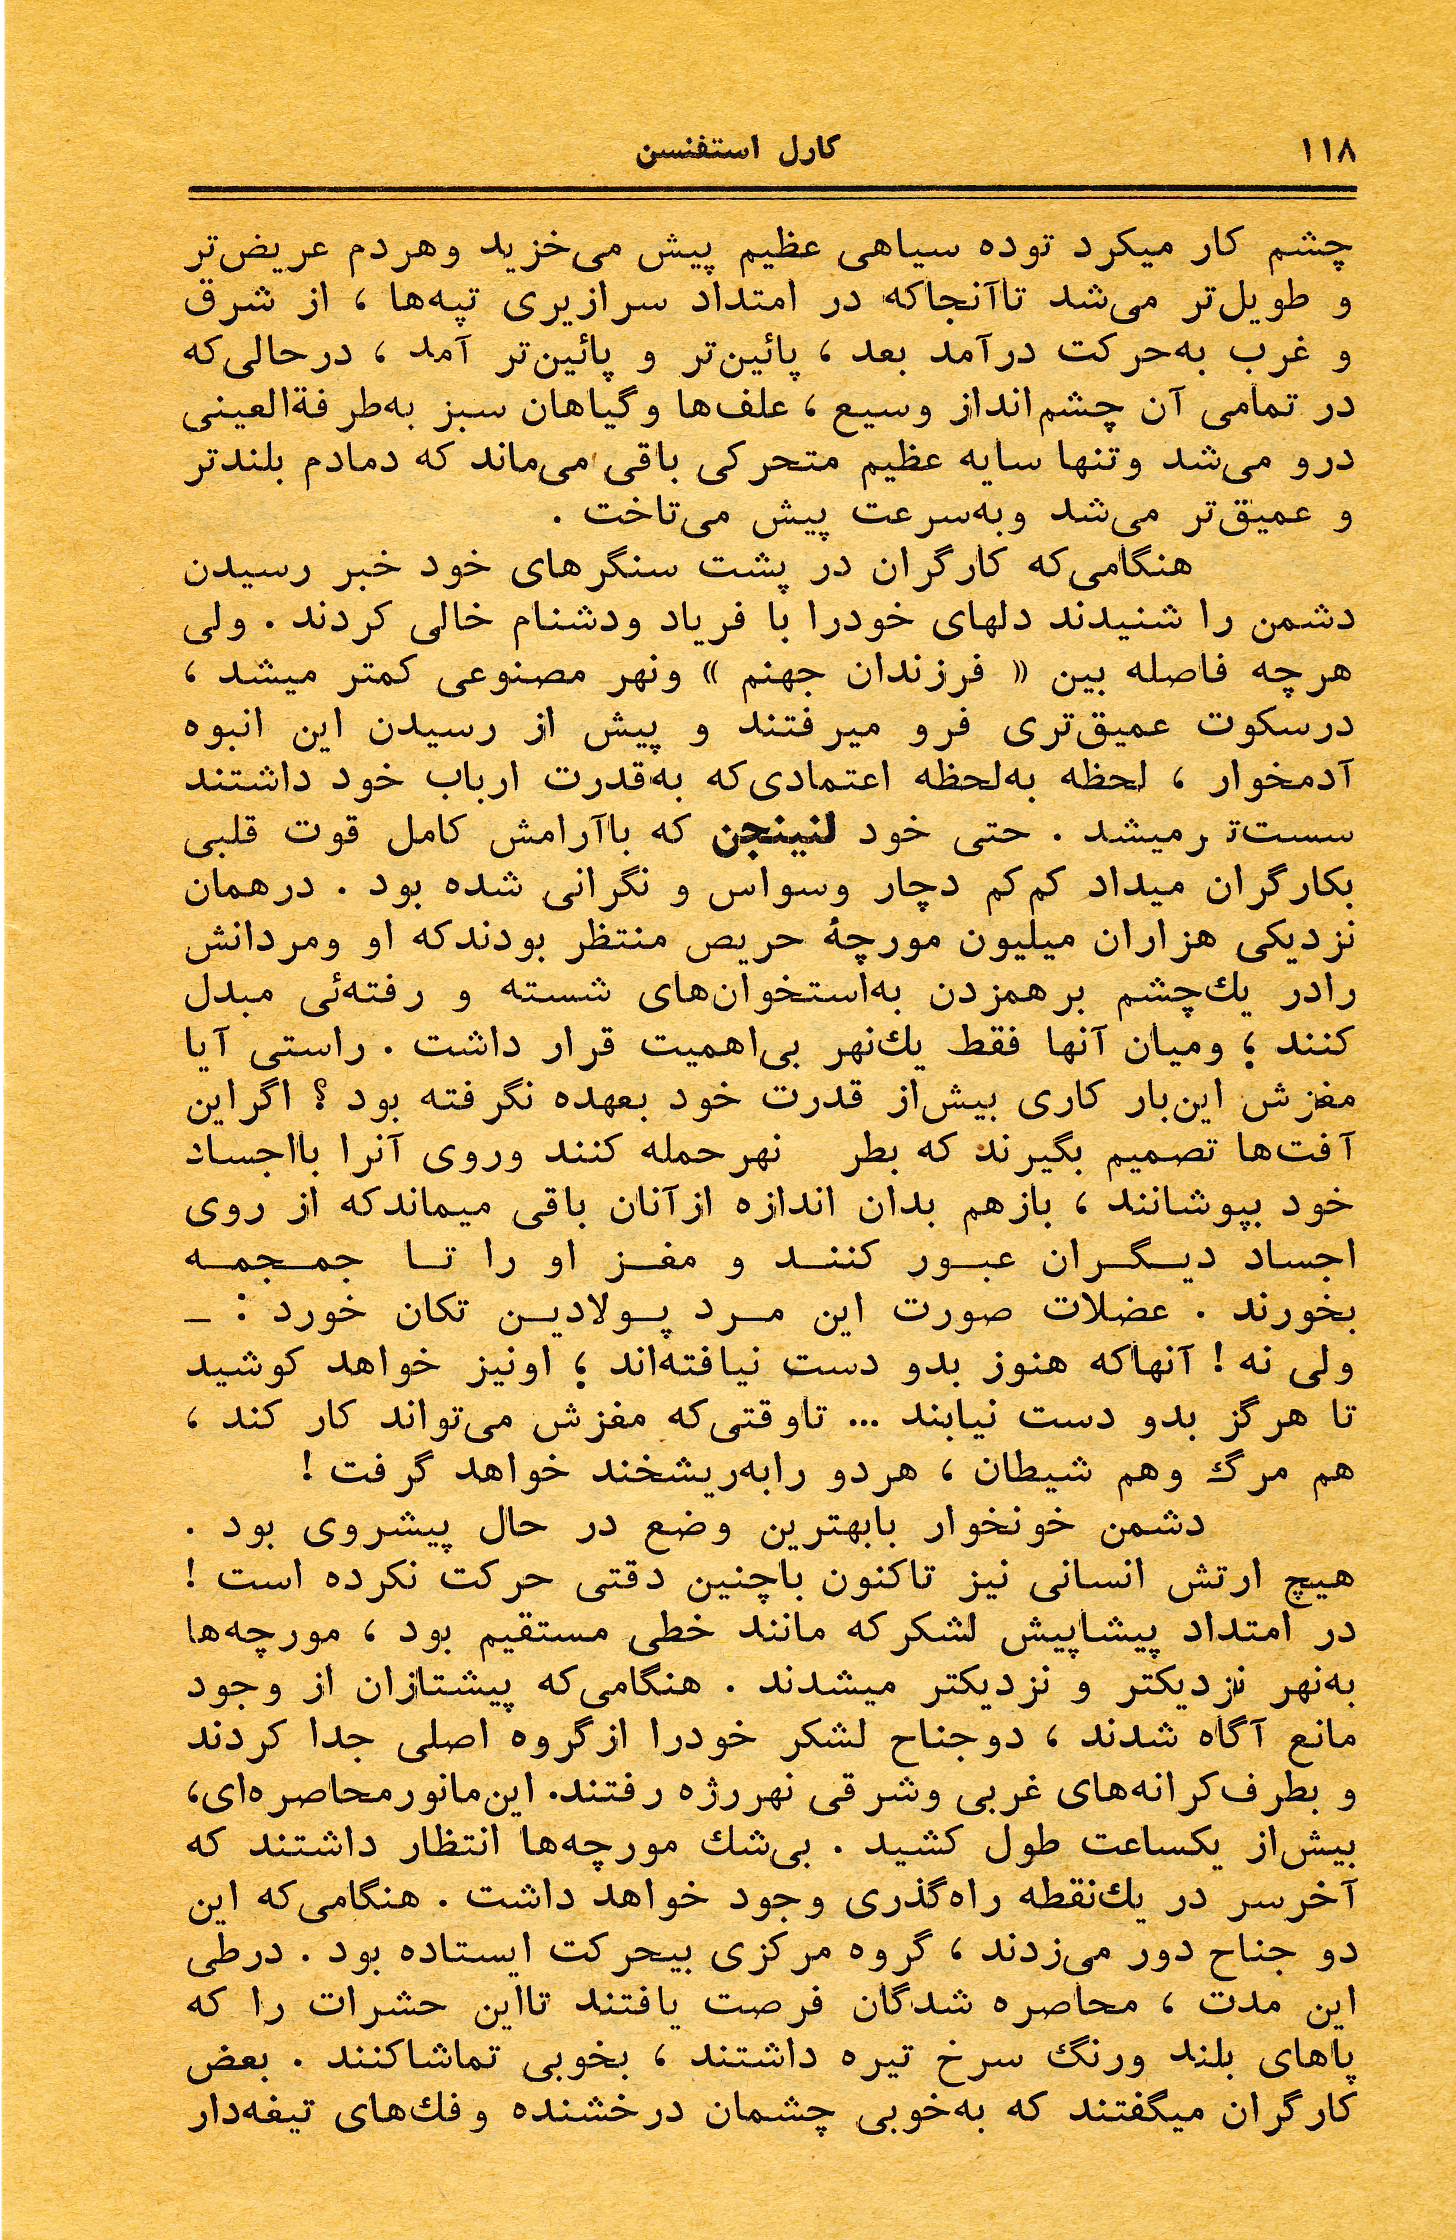 ۱۱۸
کارل استفنسن
چشم کار میکرد توده سیاهی عظیم پیش می‌خزید وهردم عریض‌تر
و طویل‌تر می‌شد تاآنجاکه در امتداد سرازیری تپه‌ها ، از شرق
و غرب به‌حرکت درآمد بعد ، پائین‌تر و پائین‌تر آمد ، درحالی‌که
در تمامی آن چشم‌انداز وسیع ، علف‌ها وگیاهان سبز به‌طرفةالعینی
درو می‌شد وتنها سایه عظیم متحرکی باقی می‌ماند که دمادم بلندتر
و عمیق‌تر می‌شد وبه‌سرعت پیش می‌تاخت .
هنگامی‌که کارگران در پشت سنگرهای خود خبر رسیدن
دشمن را شنیدند دلهای خودرا با فریاد ودشنام خالی کردند . ولی
هرچه فاصله بین « فرزندان جهنم » ونهر مصنوعی کمتر میشد ،
درسکوت عمیق‌تری فرو میرفتند و پیش از رسیدن این انبوه
آدمخوار ، لحظه به‌لحظه اعتمادی‌که به‌قدرت ارباب خود داشتند
سست‌تر میشد . حتی خود لنینجن که باآرامش کامل قوت قلبی
بکارگران میداد کم‌کم دچار وسواس و نگرانی شده بود . درهمان
نزدیکی هزاران میلیون مورچهٔ حریص منتظر بودندکه او ومردانش
رادر یك‌چشم برهمزدن به‌استخوان‌های شسته و رفته‌ئی مبدل
کنند ؛ ومیان آنها فقط یك‌نهر بی‌اهمیت قرار داشت . راستی آیا
مغزش این‌بار کاری بیش‌از قدرت خود بعهده نگرفته بود ؟ اگراین
آفت‌ها تصمیم بگیرند که بطر نهرحمله کنند وروی آنرا بااجساد
خود بپوشانند ، بازهم بدان اندازه ازآنان باقی میماندکه از روی
اجساد دیـگـران عبـور کننـد و مغـز او را تـا جمـجمـه
بخورند . عضلات صورت این مـرد پـولادیـن تکان خورد : ـ
ولی نه ! آنهاکه هنوز بدو دست نیافته‌اند ؛ اونیز خواهد کوشید
تا هرگز بدو دست نیابند ... تاوقتی‌که مغزش می‌تواند کار کند ،
هم مرگ وهم شیطان ، هردو رابه‌ریشخند خواهد گرفت !
دشمن خونخوار بابهترین وضع در حال پیشروی بود .
هیچ ارتش انسانی نیز تاکنون باچنین دقتی حرکت نکرده است !
در امتداد پیشاپیش لشکرکه مانند خطی مستقیم بود ، مورچه‌ها
به‌نهر نزدیکتر و نزدیکتر میشدند . هنگامی‌که پیشتازان از وجود
مانع آگاه شدند ، دوجناح لشکر خودرا ازگروه اصلی جدا کردند
و بطرف‌کرانه‌های غربی وشرقی نهررژه رفتند. این‌مانورمحاصره‌ای،
بیش‌از یکساعت طول کشید . بی‌شك مورچه‌ها انتظار داشتند که
آخرسر در یك‌نقطه راه‌گذری وجود خواهد داشت . هنگامی‌که این
دو جناح دور می‌زدند ، گروه مرکزی بیحرکت ایستاده بود . درطی
این مدت ، محاصره شدگان فرصت یافتند تااین حشرات را که
پاهای بلند ورنگ سرخ تیره داشتند ، بخوبی تماشاکنند . بعض
کارگران میگفتند که به‌خوبی چشمان درخشنده وفك‌های تیغه‌دار